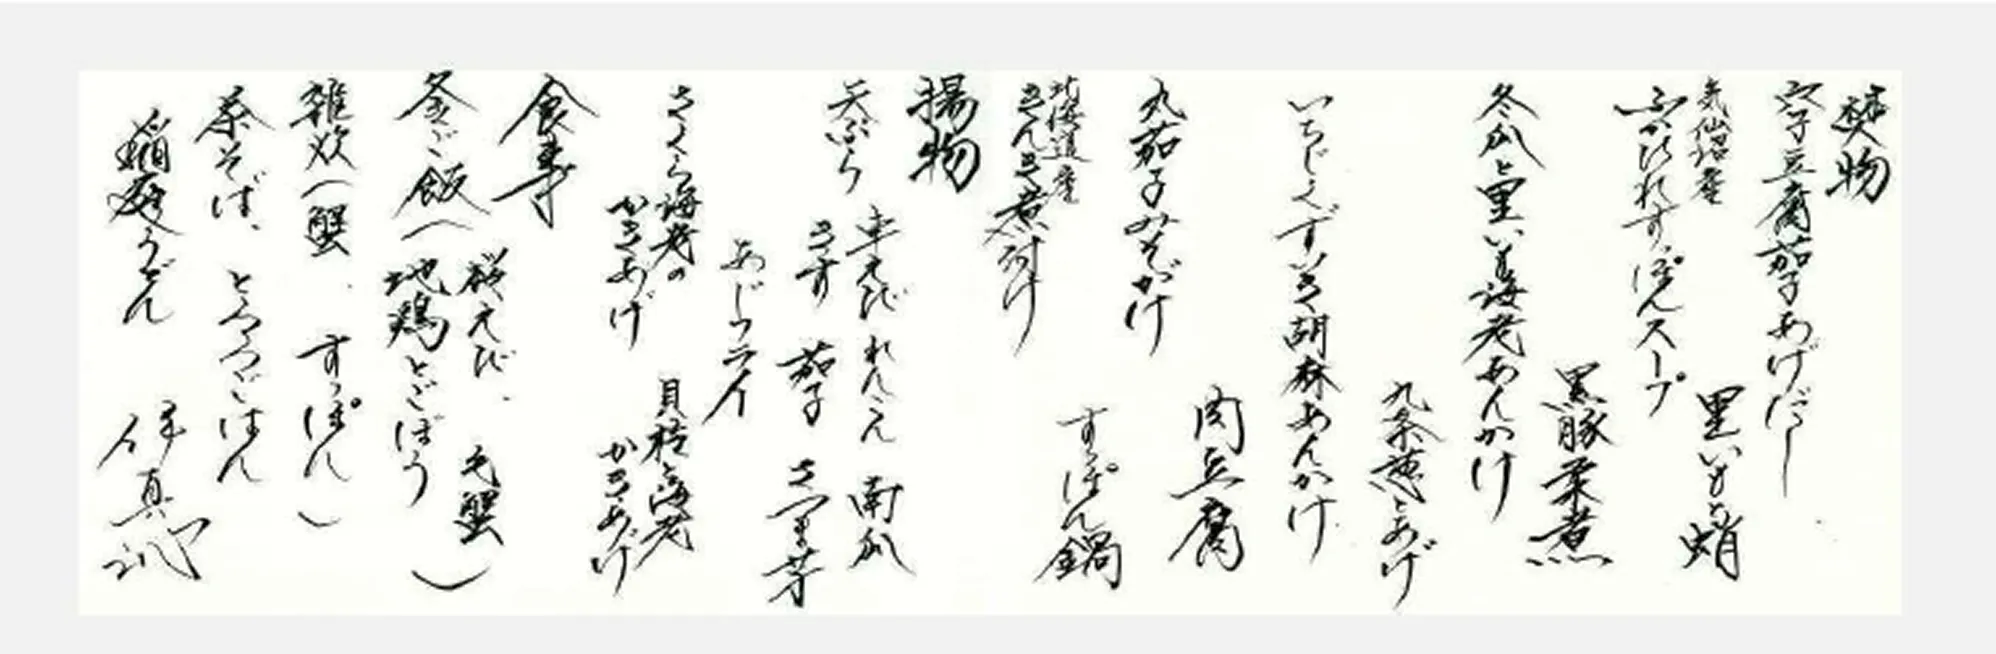 焚物
穴子豆腐茄子あげだし
里いもと蛸
気仙沼産
ふかひれすっぽんスープ
黒豚柔煮
冬瓜と里いも海老あんかけ
九条葱とあげ
いちじくずいき胡麻あんかけ
肉豆腐
丸茄子みそがけ
すっぽん鍋
北海道産
きんき煮付け
揚物
天ぷら 車えび れんこん 南瓜
きす 茄子 さつま芋
あじフライ
さくら海老の
かきあげ
貝柱と海老
かきあげ
食事
釜ご飯(桜えび、毛蟹
地鶏とごぼう)
雑炊(蟹、すっぽん)
茶そば、とろろごはん
稲庭うどん